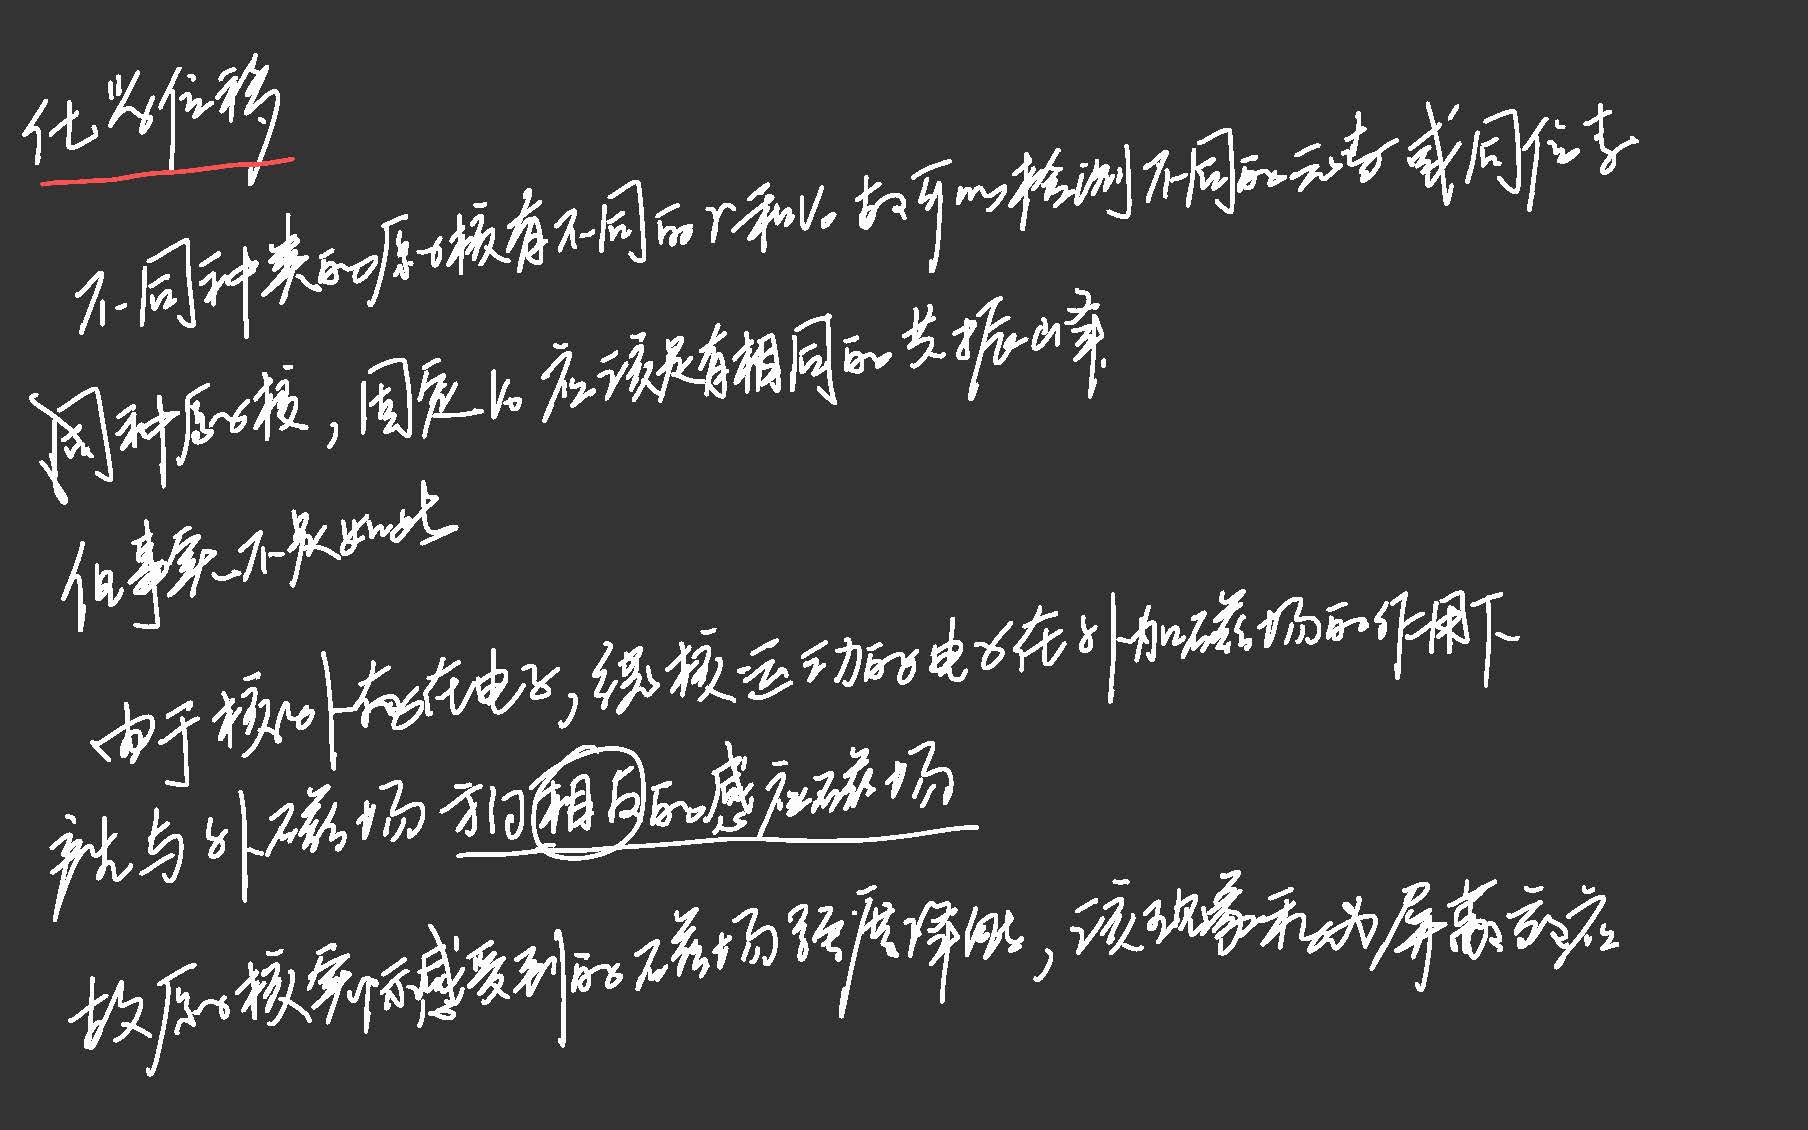 化学位移
不同种类的原子核有不同的γ和ν₀ 故可以检测不同的元素或同位素
同种原子核，固定ν₀ 应该是有相同的共振峰
但事实不是如此
由于核外存在电子，绕核运动的电子在外加磁场的作用下
产生与外磁场方向相反的感应磁场
故原子核实际感受到的磁场强度降低，该现象称为屏蔽效应